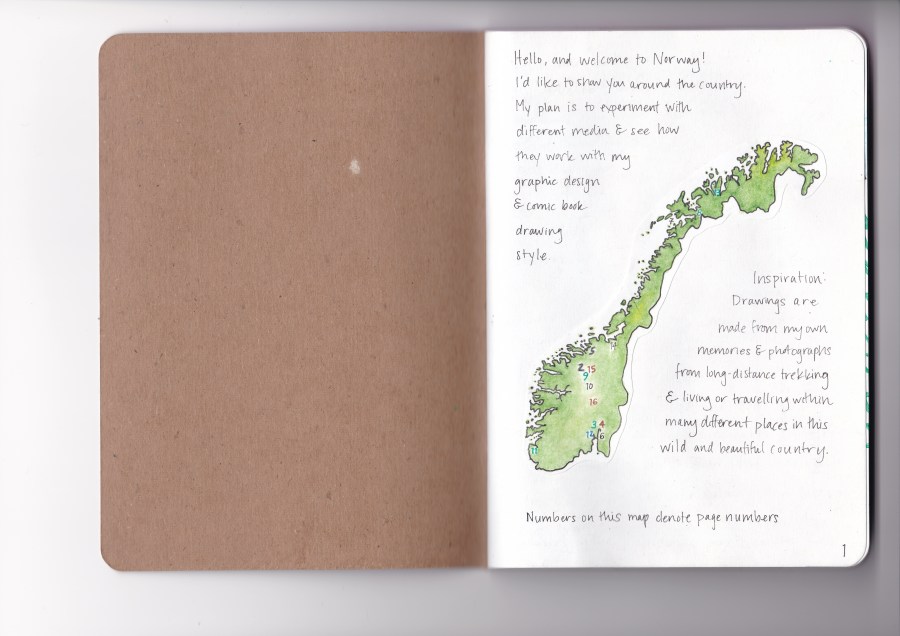 Hello, and welcome to Norway!
I'd like to show you around the country.
My plan is to experiment with
different media & see how
they work with my
graphic design
& comic book
drawing
style.
Inspiration:
Drawings are
made from my own
memories & photographs
from long-distance trekking
& living or travelling within
many different places in this
wild and beautiful country.
2 15
9
10
16
3 4
12 6
11
Numbers on this map denote page numbers
1